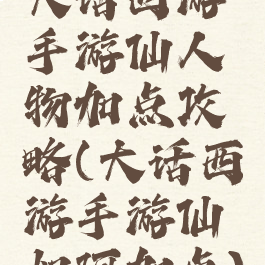 大话西游
手游仙人
物加点攻
略(大话西
游手游仙
加点)